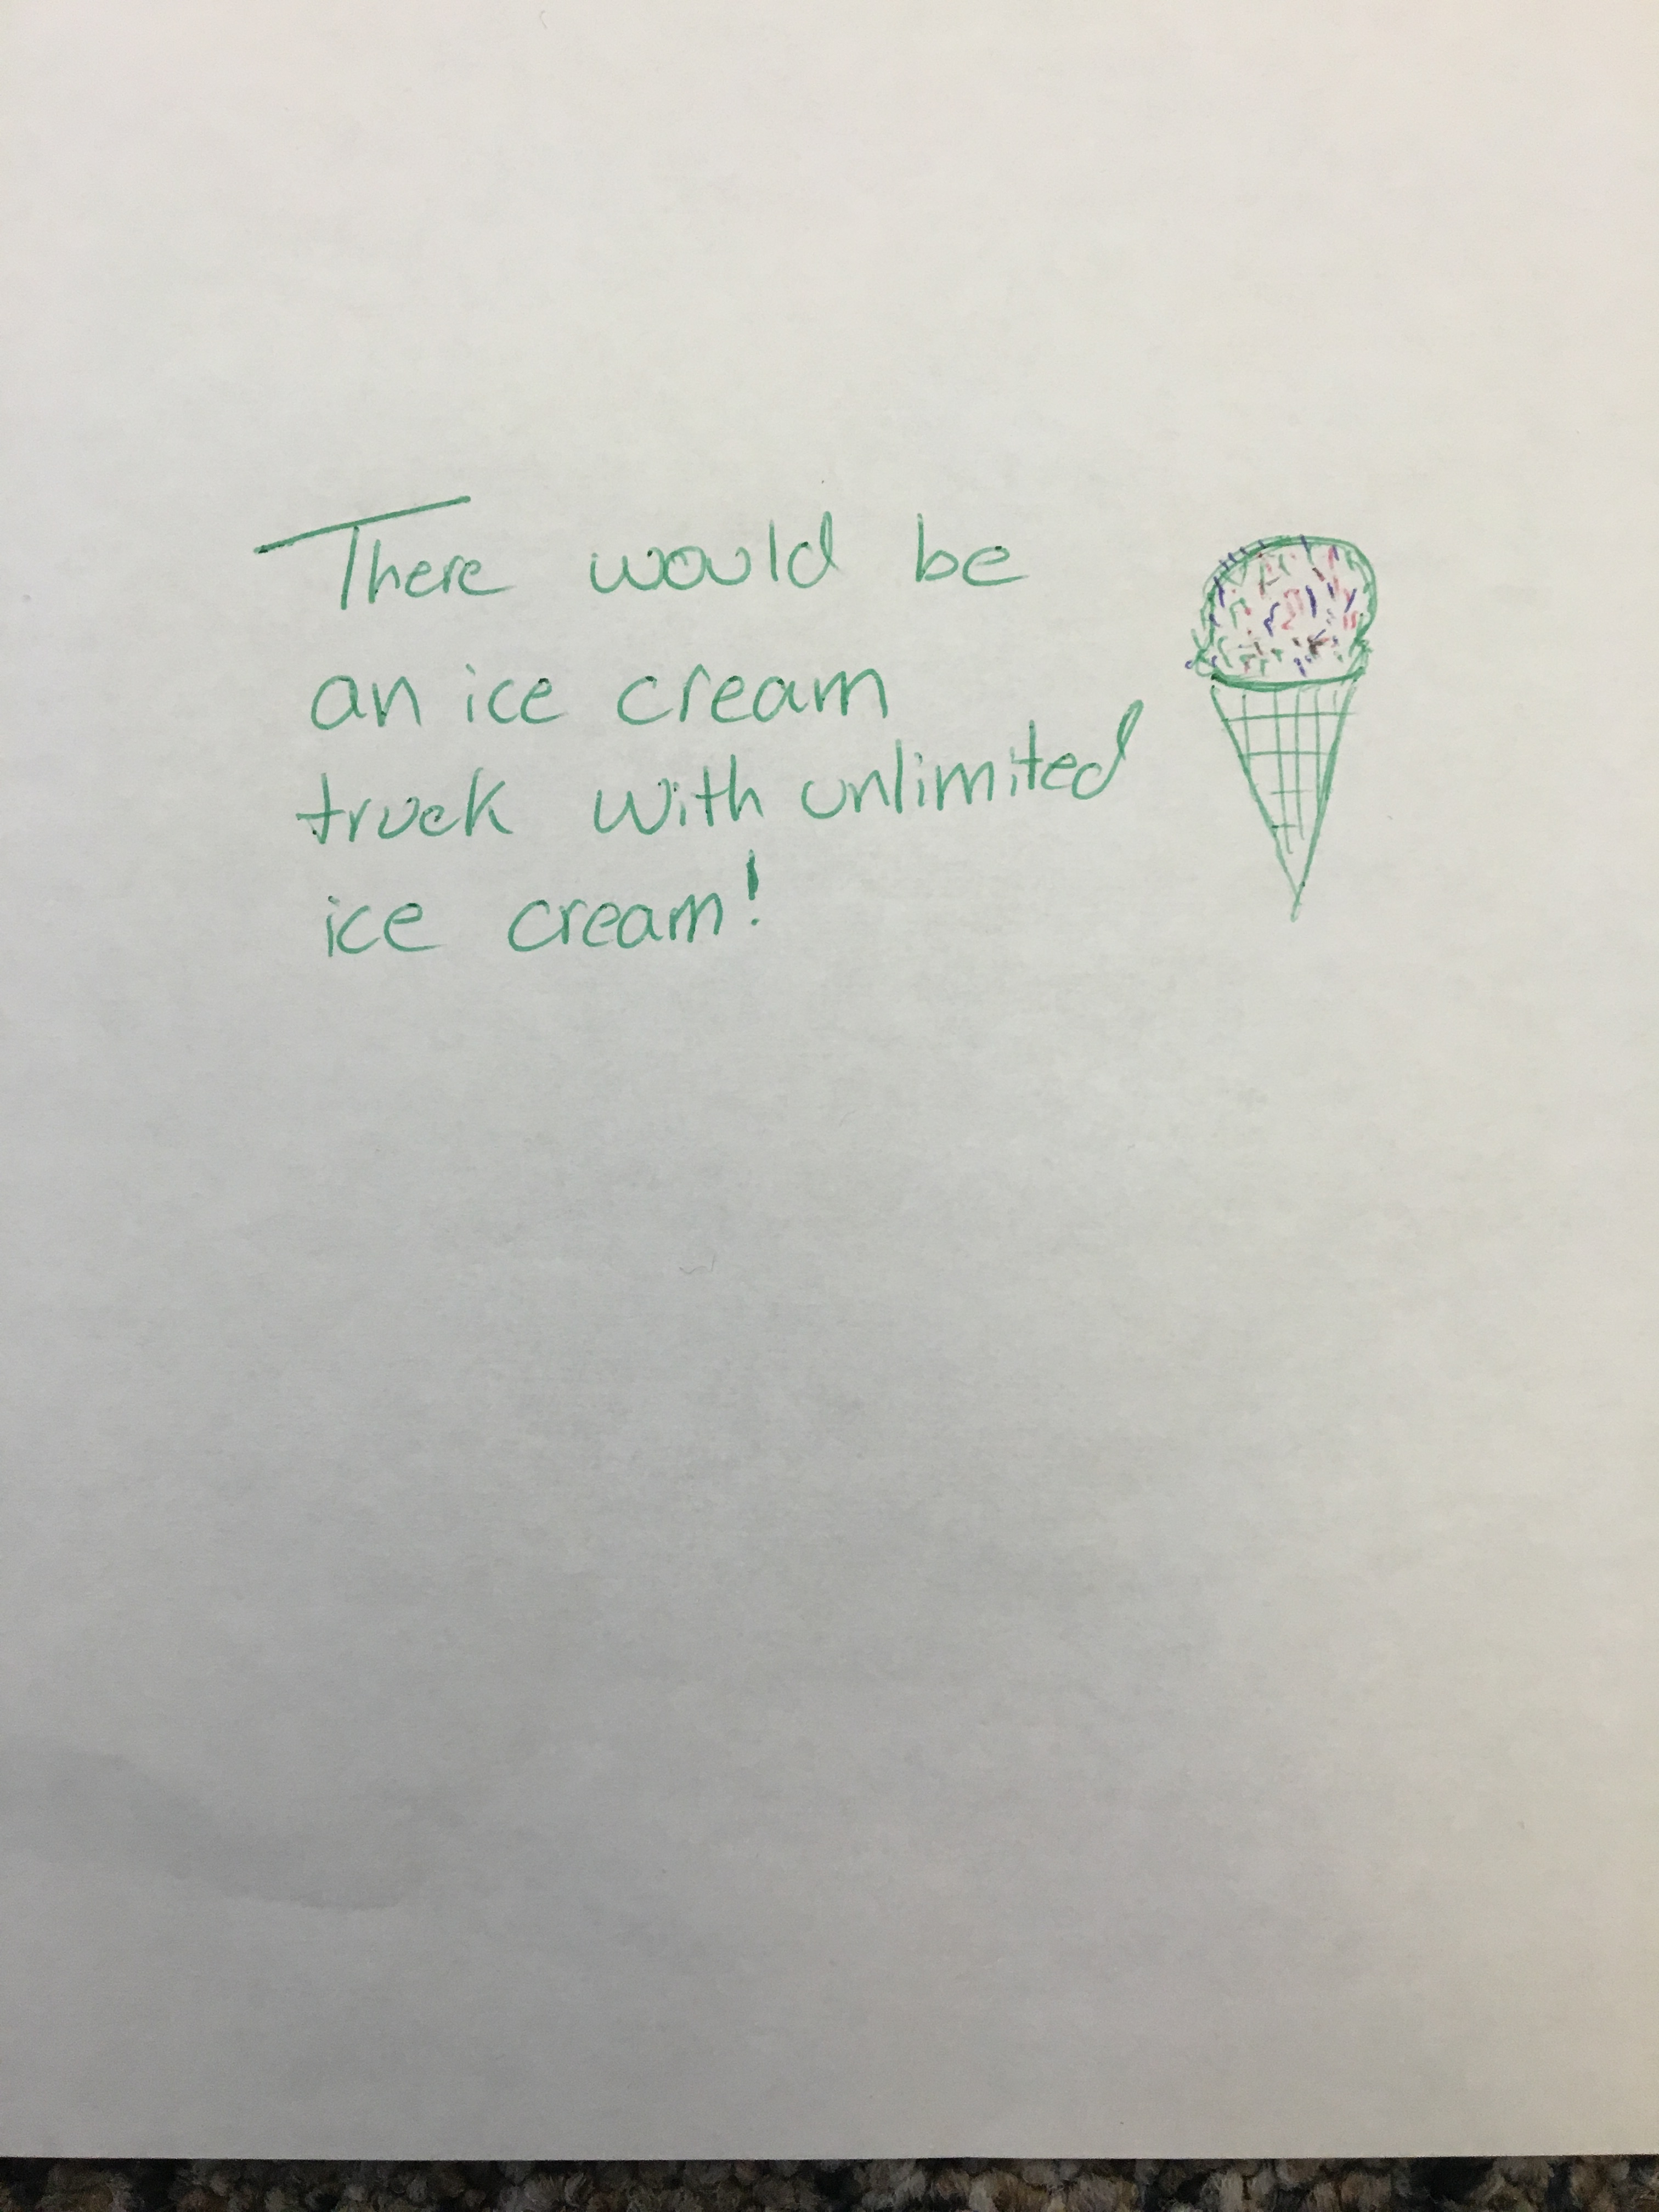 There would be
an ice cream
truck with unlimited
ice cream!